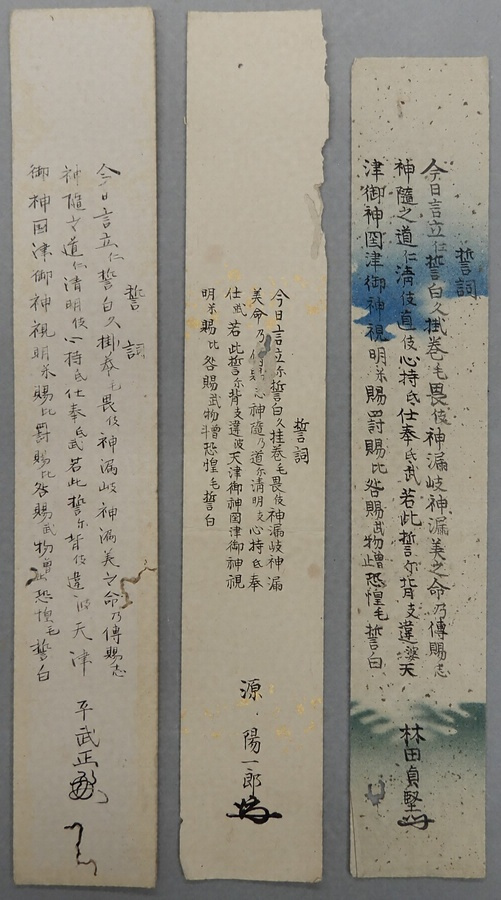 誓詞
今日言立仁誓白久掛巻毛畏伎神漏岐神漏美之命乃傳賜志
神隨之道仁清直伎心持氐仕奉氐武若此誓尓背支違婆天
津御神国津御神視明米賜罰賜比咎賜武物曽恐惶毛誓白
林田貞堅
誓詞
今日言立尓誓白久挂巻毛畏伎神漏岐神漏
美命乃志神隨乃道尓清明支心持氐奉
仕武若此誓尓背支違波天津御神国津御神視
明米賜比咎賜武物曽恐惶毛誓白
源陽一郎
誓詞
今日言立仁誓白久掛巻毛畏伎神漏岐神漏美之命乃傳賜志
神隨之道仁清明伎心持氐仕奉氐武若此誓尓背伎違波天津
御神国津御神視明米賜比罰賜比咎賜武物曽恐惶毛誓白
平武正